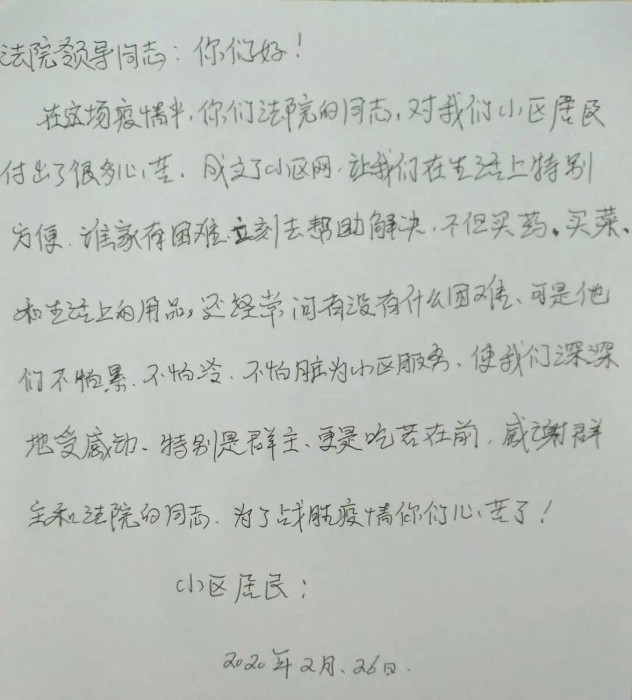 法院领导同志：你们好！
在这场疫情中，你们法院的同志，对我们小区居民
付出了很多心苦，成立了小区网，让我们在生活上特别
方便，谁家有困难立刻去帮助解决，不但买药、买菜、
和生活上的用品，还经常问有没有什么困难、可是他
们不怕累、不怕冷、不怕脏为小区服务，使我们深深
地受感动、特别是群主、更是吃苦在前，感谢群
主和法院的同志，为了战胜疫情你们心苦了！
小区居民：
2020年2月、26日.